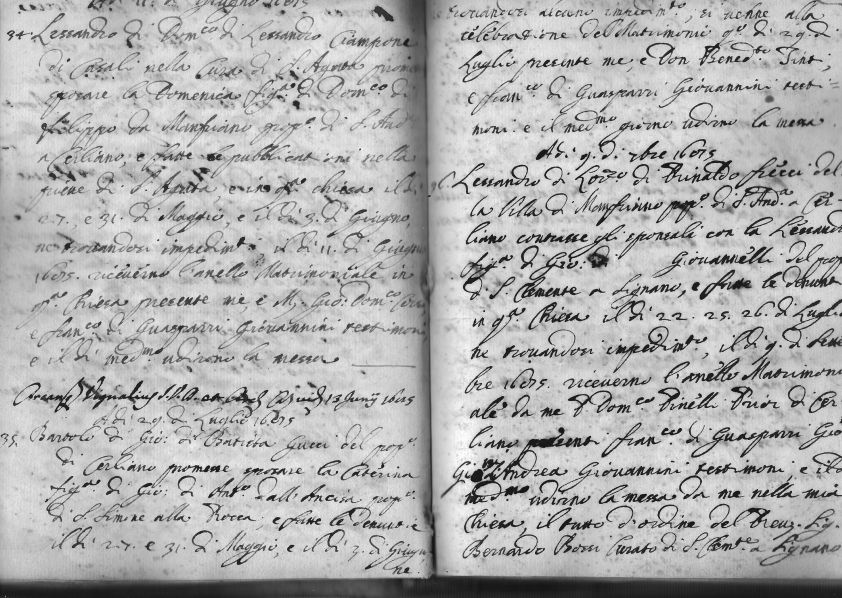 di Giugno 1675
34 Lessandro di Dom.co di Lessandro Ciampone
di Casali nella Cura di S. Agata promette
sposare la Domenica fig.a di Dom.co di
filippo da Manfriano pop.o di S. And.a
a Cerliano, e fatte le pubblicationi nella
pieve di S. Agata, e in q.a chiesa il di
27., e 31. di Maggio, e il di 3. di Giugno,
ne trovandosi impedim.ti il di 11. di Giugno
1675. riceverno l'anello Matrimoniale in
q.a Chiesa presente me, e M. Gio: Dom.co
e fran.co di Guasparri Giovannini testimoni
e il di med.mo udirno la messa
13 Junij 1675
A di 29. di Luglio 1675
35. Bartolo di Gio: di Batista Gucci del pop.o
di Cerliano promette sposare la Caterina
fig.a di Gio: di Ant.o dall'Ancisa pop.o
di S. Simone alla Rocca e fatte le denuntie
il di 27. e 31. di Maggio, e il di 3. di Giugno,
ne
trovandosi alcuno impedim.to, si venne alla
celebratione del Matrimonio q.o di 29. di
Luglio presente me, e Don Bened.to Tinti,
e fran.co di Guasparri Giovannini testi=
moni e il med.mo giorno udirno la messa
A di 9. di 7bre 1675
Lessandro di Lor.zo di Rinaldo fricci del
la Villa di Manfriano pop.o di S. And.a a Cer-
liano contrasse gli sponsali con la Lessandra
fig.a di Gio: di Giovannelli del pop.o
di S. Clemente a Lignano, e fatte le denuntie
in q.a Chiesa il di 22. 25. 26. di Luglio
ne trovandosi impedim.to, il di 9. di Settem
bre 1675. riceverno l'anello Matrimoni
ale da me P. Dom.co Pinelli Prior di Cer
liano presenti fran.co di Guasparri Gio
Andrea Giovannini testimoni e il di
med.mo udirno la messa da me nella mia
Chiesa, il tutto d'ordine del Reu. Sig.
Bernardo Bossi Curato di S. Clem.te a Lignano